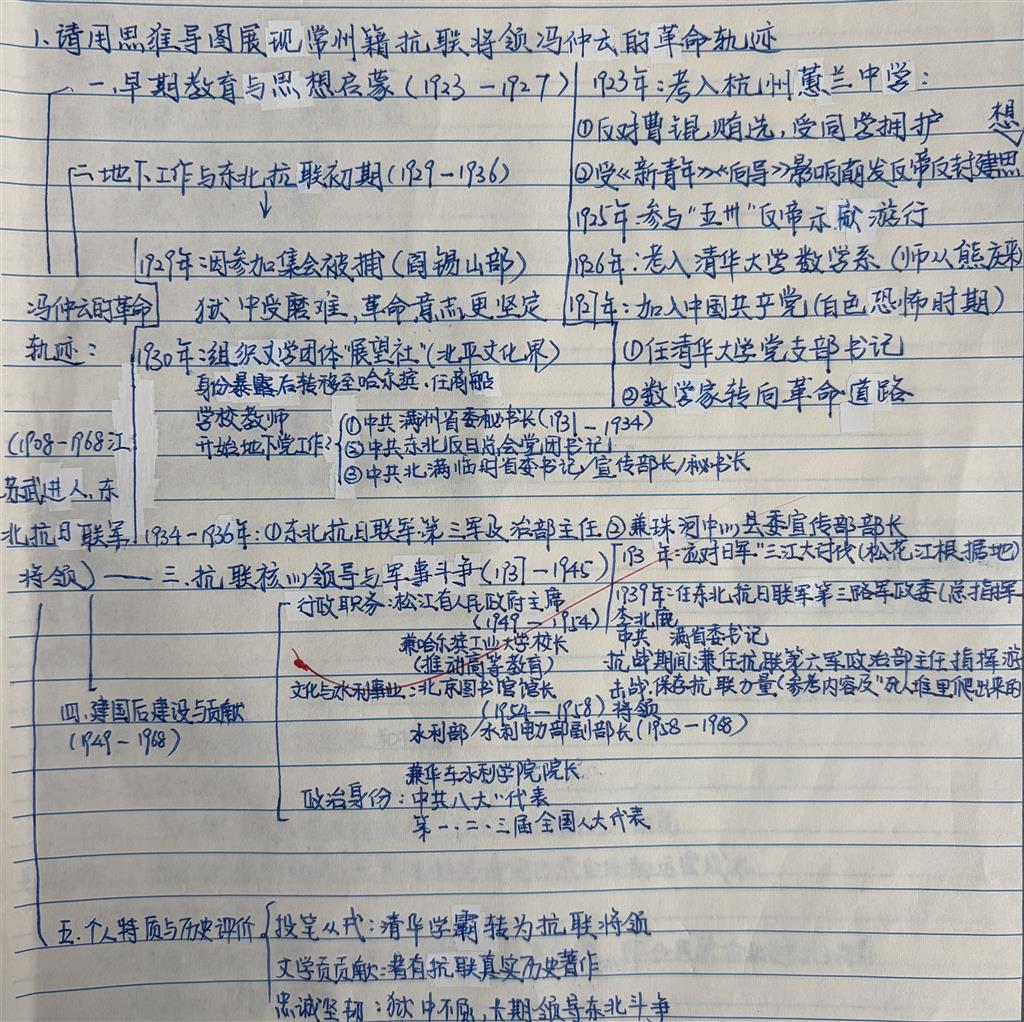 1.请用思维导图展现常州籍抗联将领冯仲云的革命轨迹
一.早期教育与思想启蒙(1923-1927)
1923年:考入杭州蕙兰中学:
①反对曹锟贿选,受同学拥护
②受《新青年》《向导》影响萌发反帝反封建思想
1925年:参与"五卅"反帝示威游行
1926年:考入清华大学数学系(师从熊庆来)
1927年:加入中国共产党(白色恐怖时期)
①任清华大学党支部书记
②数学家转向革命道路
二.地下工作与东北抗联初期(1929-1936)
↓
1929年:因参加集会被捕(阎锡山部)
狱中受磨难,革命意志更坚定
冯仲云的革命
轨迹:
(1908-1968江
苏武进人,东
北抗日联军
将领)
1930年:组织文学团体"展望社"(北平文化界)
身份暴露后转移至哈尔滨.任商船
学校教师
开始地下党工作:
①中共满州省委秘书长(1931-1934)
②中共东北反日总会党团书记
③中共北满临时省委书记/宣传部长/秘书长
1934-1936年:①东北抗日联军第三军政治部主任 ②兼珠河中心县委宣传部部长
三.抗联核心领导与军事斗争(1937-1945)
193 年:应对日军"三江大讨伐(松花江根据地)
1939年:任东北抗日联军第三路军政委(总指挥
李兆麟
中共 满省委书记
抗战期间:兼任抗联第六军政治部主任指挥游
击战,保存抗联力量(参考内容及"死人堆里爬出来的
将领
四.建国后建设与贡献
(1949-1968)
行政职务:松江省人民政府主席
(1949-1954)
兼哈尔滨工业大学校长
(推动高等教育)
文化与水利事业:北京图书馆馆长
(1954-1958)
水利部/水利电力部副部长(1958-1968)
兼华东水利学院院长
政治身份:中共八大"代表
第一.二.三届全国人大代表
五.个人特质与历史评价
投笔从戎:清华学霸转为抗联将领
文学贡贡献:著有抗联真实历史著作
忠诚坚韧:狱中不屈,长期领导东北斗争